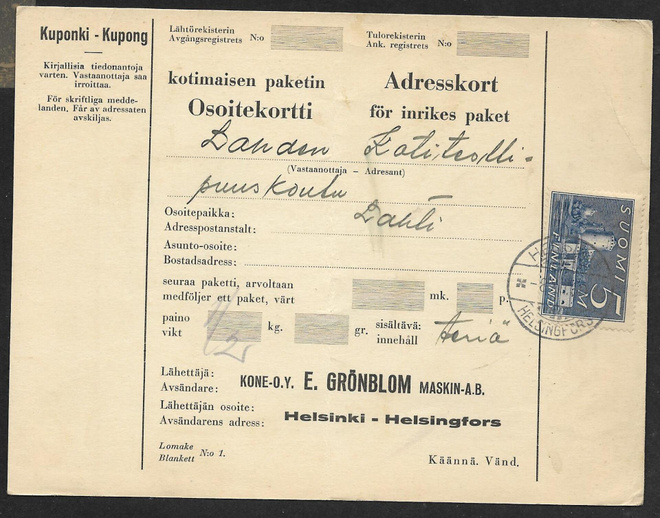 Kuponki - Kupong
Kirjallisia tiedonantoja
varten. Vastaanottaja saa
irroittaa.
För skriftliga medde-
landen. Får av adressaten
avskiljas.
Lähtörekisterin
Avgångsregistrets N:o
Tulorekisterin
Ank. registrets N:o
kotimaisen paketin
Osoitekortti
Adresskort
för inrikes paket
Lahden Kotiteolli-
(Vastaanottaja – Adresant)
suuskoulu
Osoitepaikka:
Adresspostanstalt:
Lahti
Asunto-osoite:
Bostadsadress:
seuraa paketti, arvoltaan
medföljer ett paket, värt
mk.
p.
paino
vikt
kg.
gr.
sisältävä:
innehåll
teriä
Lähettäjä:
Avsändare:
KONE-O.Y. E. GRÖNBLOM MASKIN-A.B.
Lähettäjän osoite:
Avsändarens adress:
Helsinki - Helsingfors
Lomake
Blankett N:o 1.
Käännä. Vänd.
SUOMI
FINLAND
5
M
HELSINGFORS